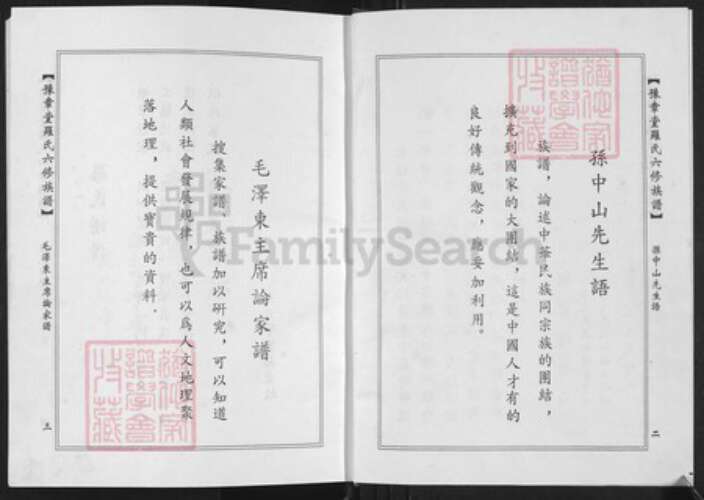 【豫章堂羅氏六修族譜】
孫中山先生語
二
孫中山先生語
族譜，論述中華民族同宗族的團結，
擴充到國家的大團結，這是中國人才有的
良好傳統觀念，應妥加利用。
毛澤東主席論家譜
搜集家譜、族譜加以研究，可以知道
人類社會發展規律，也可以爲人文地理聚
落地理，提供寳貴的資料。
【豫章堂羅氏六修族譜】
毛澤東主席論家譜
三
FamilySearch